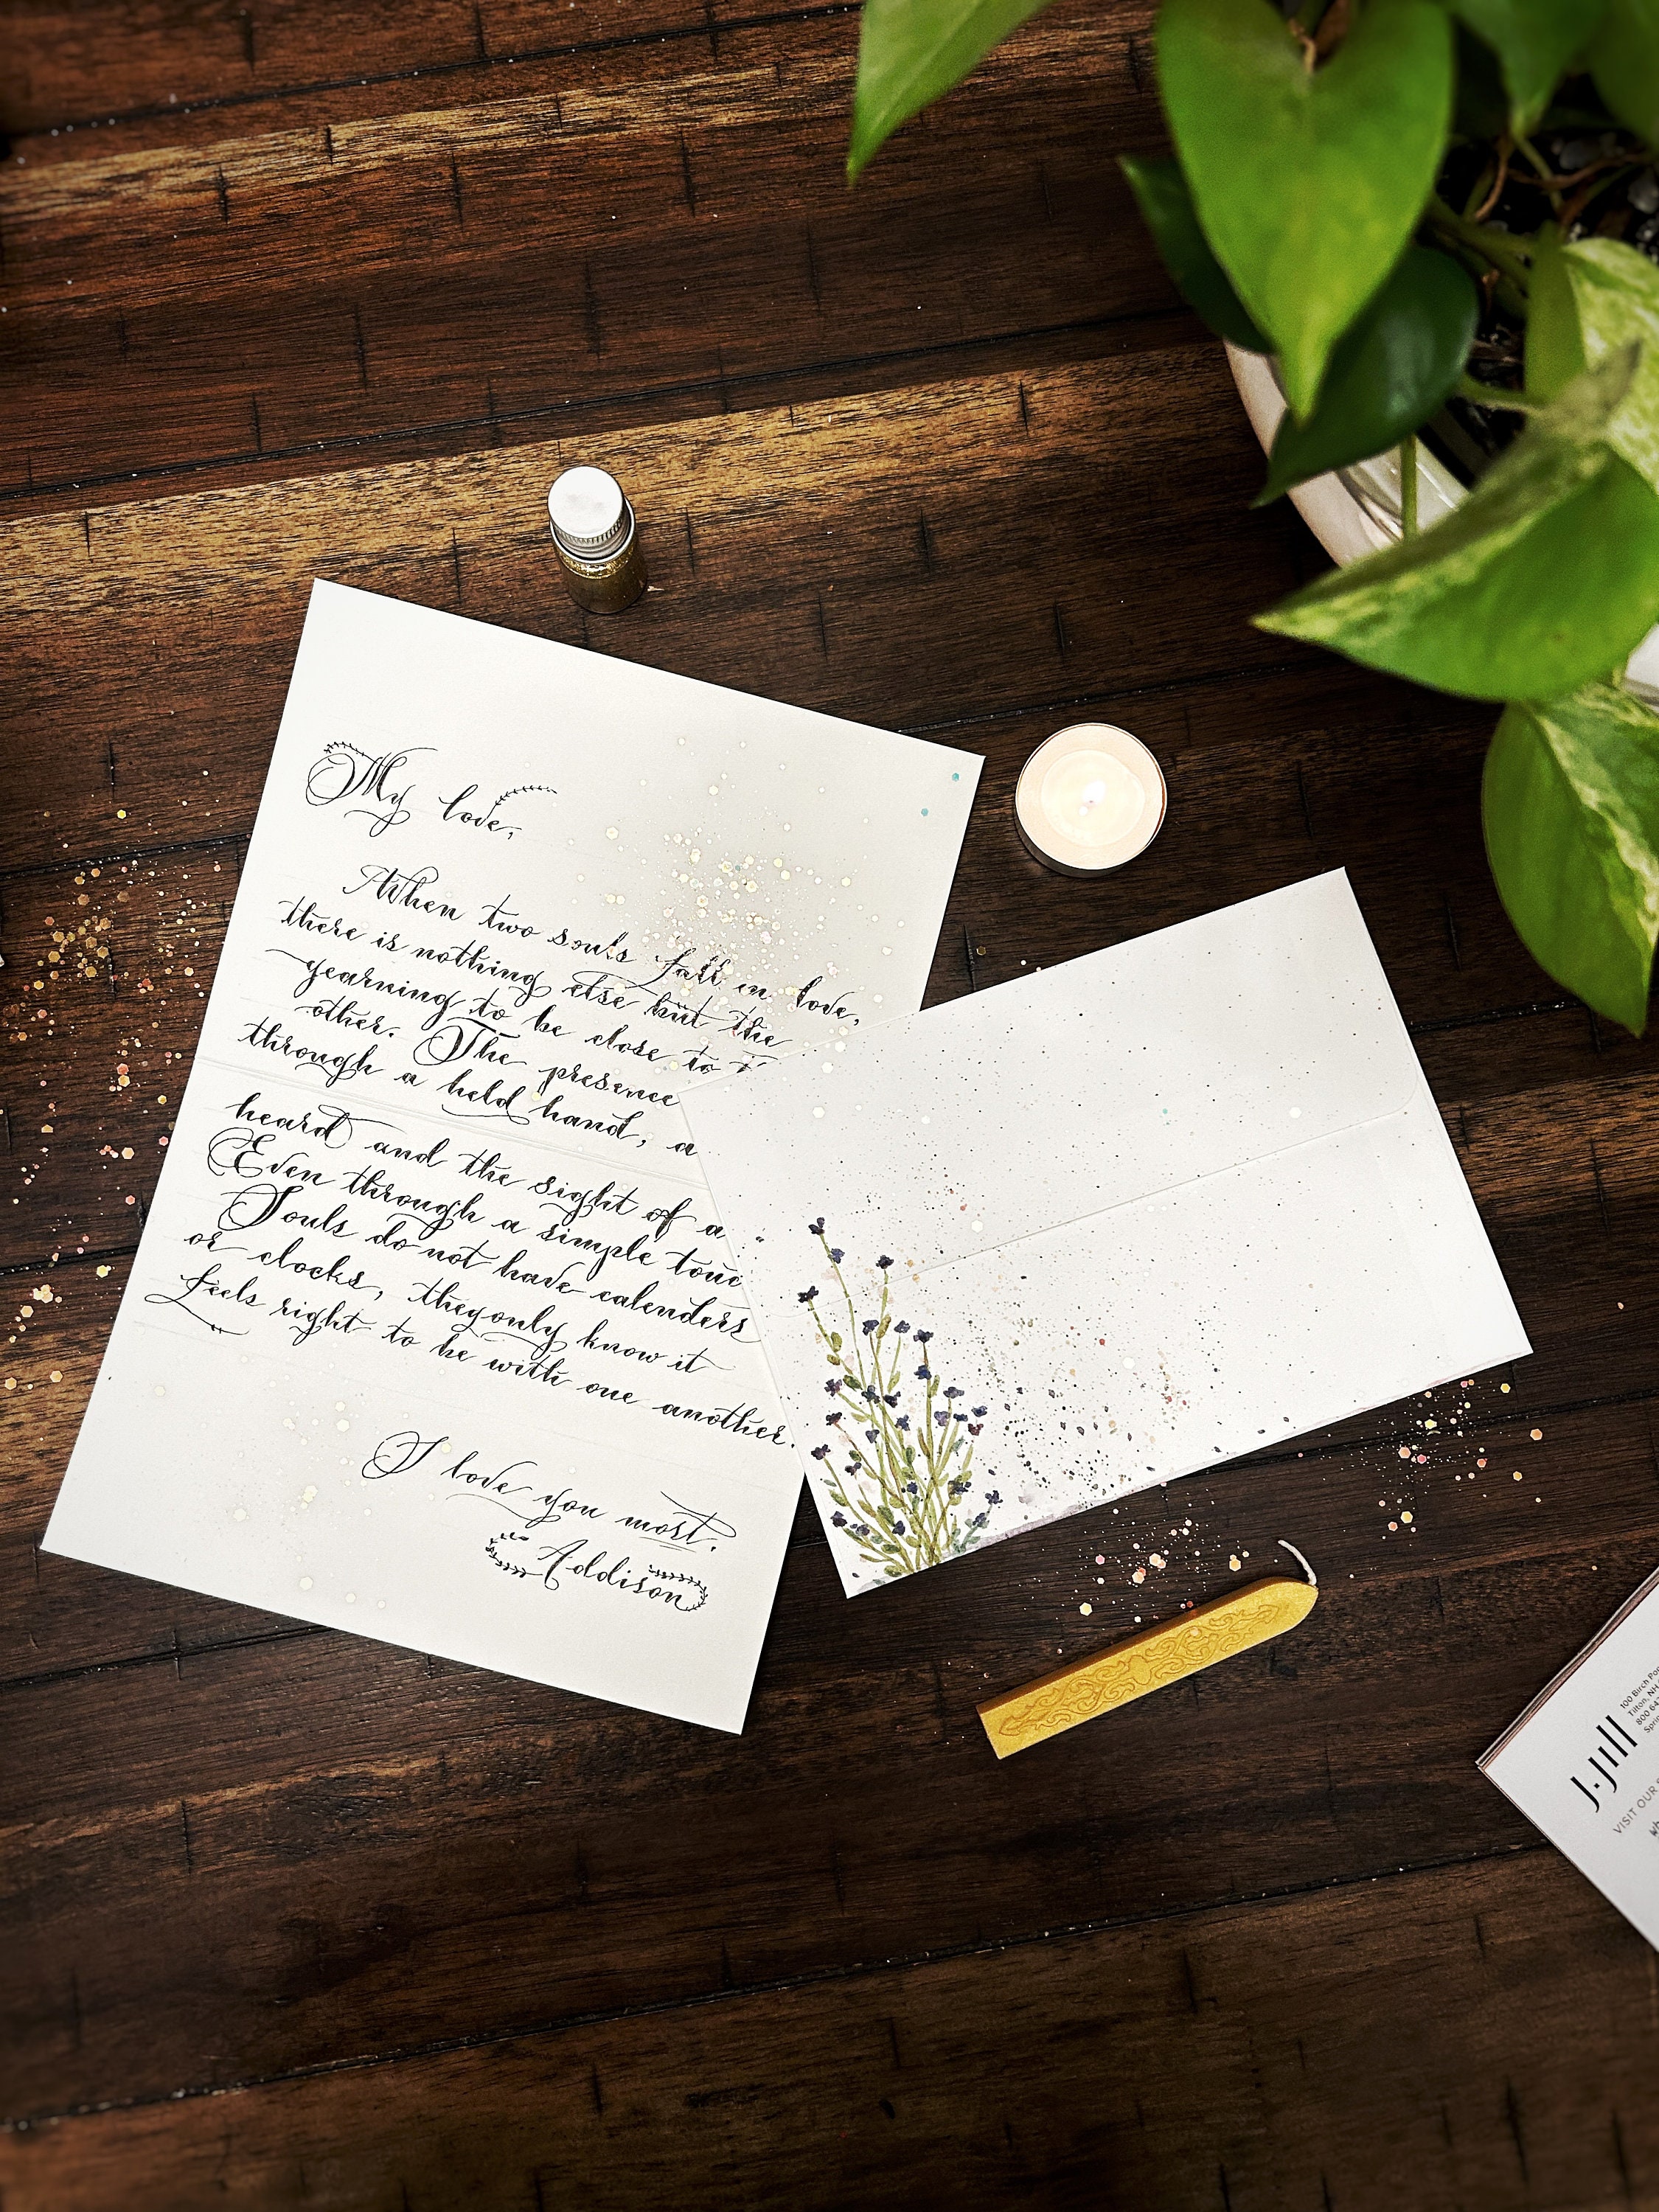 My love,
When two souls fall in love,
there is nothing else but the
yearning to be close to
other. The presence
through a held hand, a
heard and the sight of a
Even through a simple
Souls do not have calenders
or clocks, they only know it
feels right to be with one another.
I love you most.
Addison
J.Jill
100 Birch
Tilton, NH
800
VISIT OUR